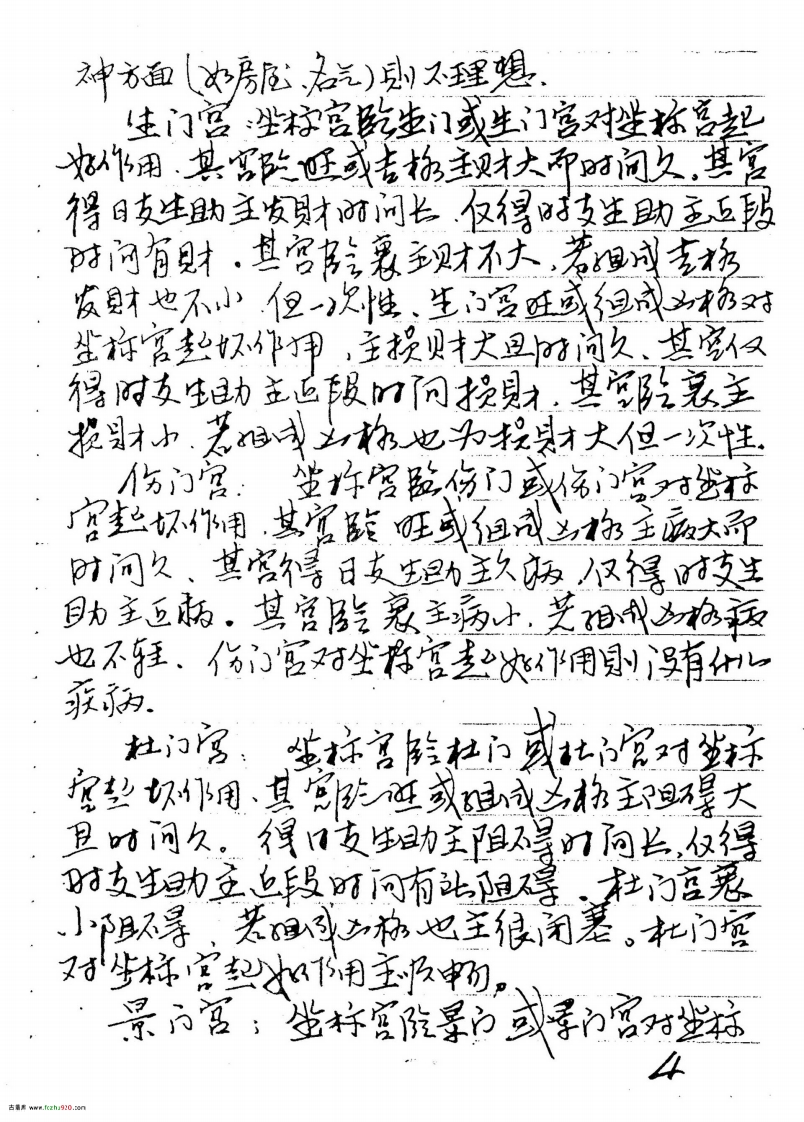 神方面(如房屋、名气)則不理想.
生门宫:坐标宫臨生门或生门宫对坐标宫起
好作用、其宫臨旺或吉格主財大而时间久,其宫
得日支生助主发財时间长、仅得时支生助主近段
时间有財。其宫臨衰主财不大,若组成吉格
发財也不小,但一次性、生门宫旺或组成凶格对
坐标宫起坏作用、主损财大且时间久、其宫仅
得时支生助主近段时间损財.其宫臨衰主
损财小.若组成凶格也为损财大但一次性.
伤门宫:坐标宫臨伤门或伤门宫对坐标
宫起坏作用、其宫臨旺或组成凶格主病大而
时间久、其宫得日支生助主久病,仅得时支生
助主近病。其宫臨衰主病小.若组成凶格病
也不轻、伤门宫对坐标宫起好作用則没有什么
疾病.
杜门宫:坐标宫臨杜门或杜门宫对坐标
宫起坏作用、其宫臨旺或组成凶格主阻碍大
且时间久。得日支生助主阻碍时间长,仅得
时支生助主近段时间有点阻碍。杜门宫衰
小阻碍、若组成凶格也主很闭塞。杜门宫
对坐标宫起好作用主顺畅。
景门宫:坐标宫臨景门或景门宫对坐标
4
古籍库 www.fczhu920.com